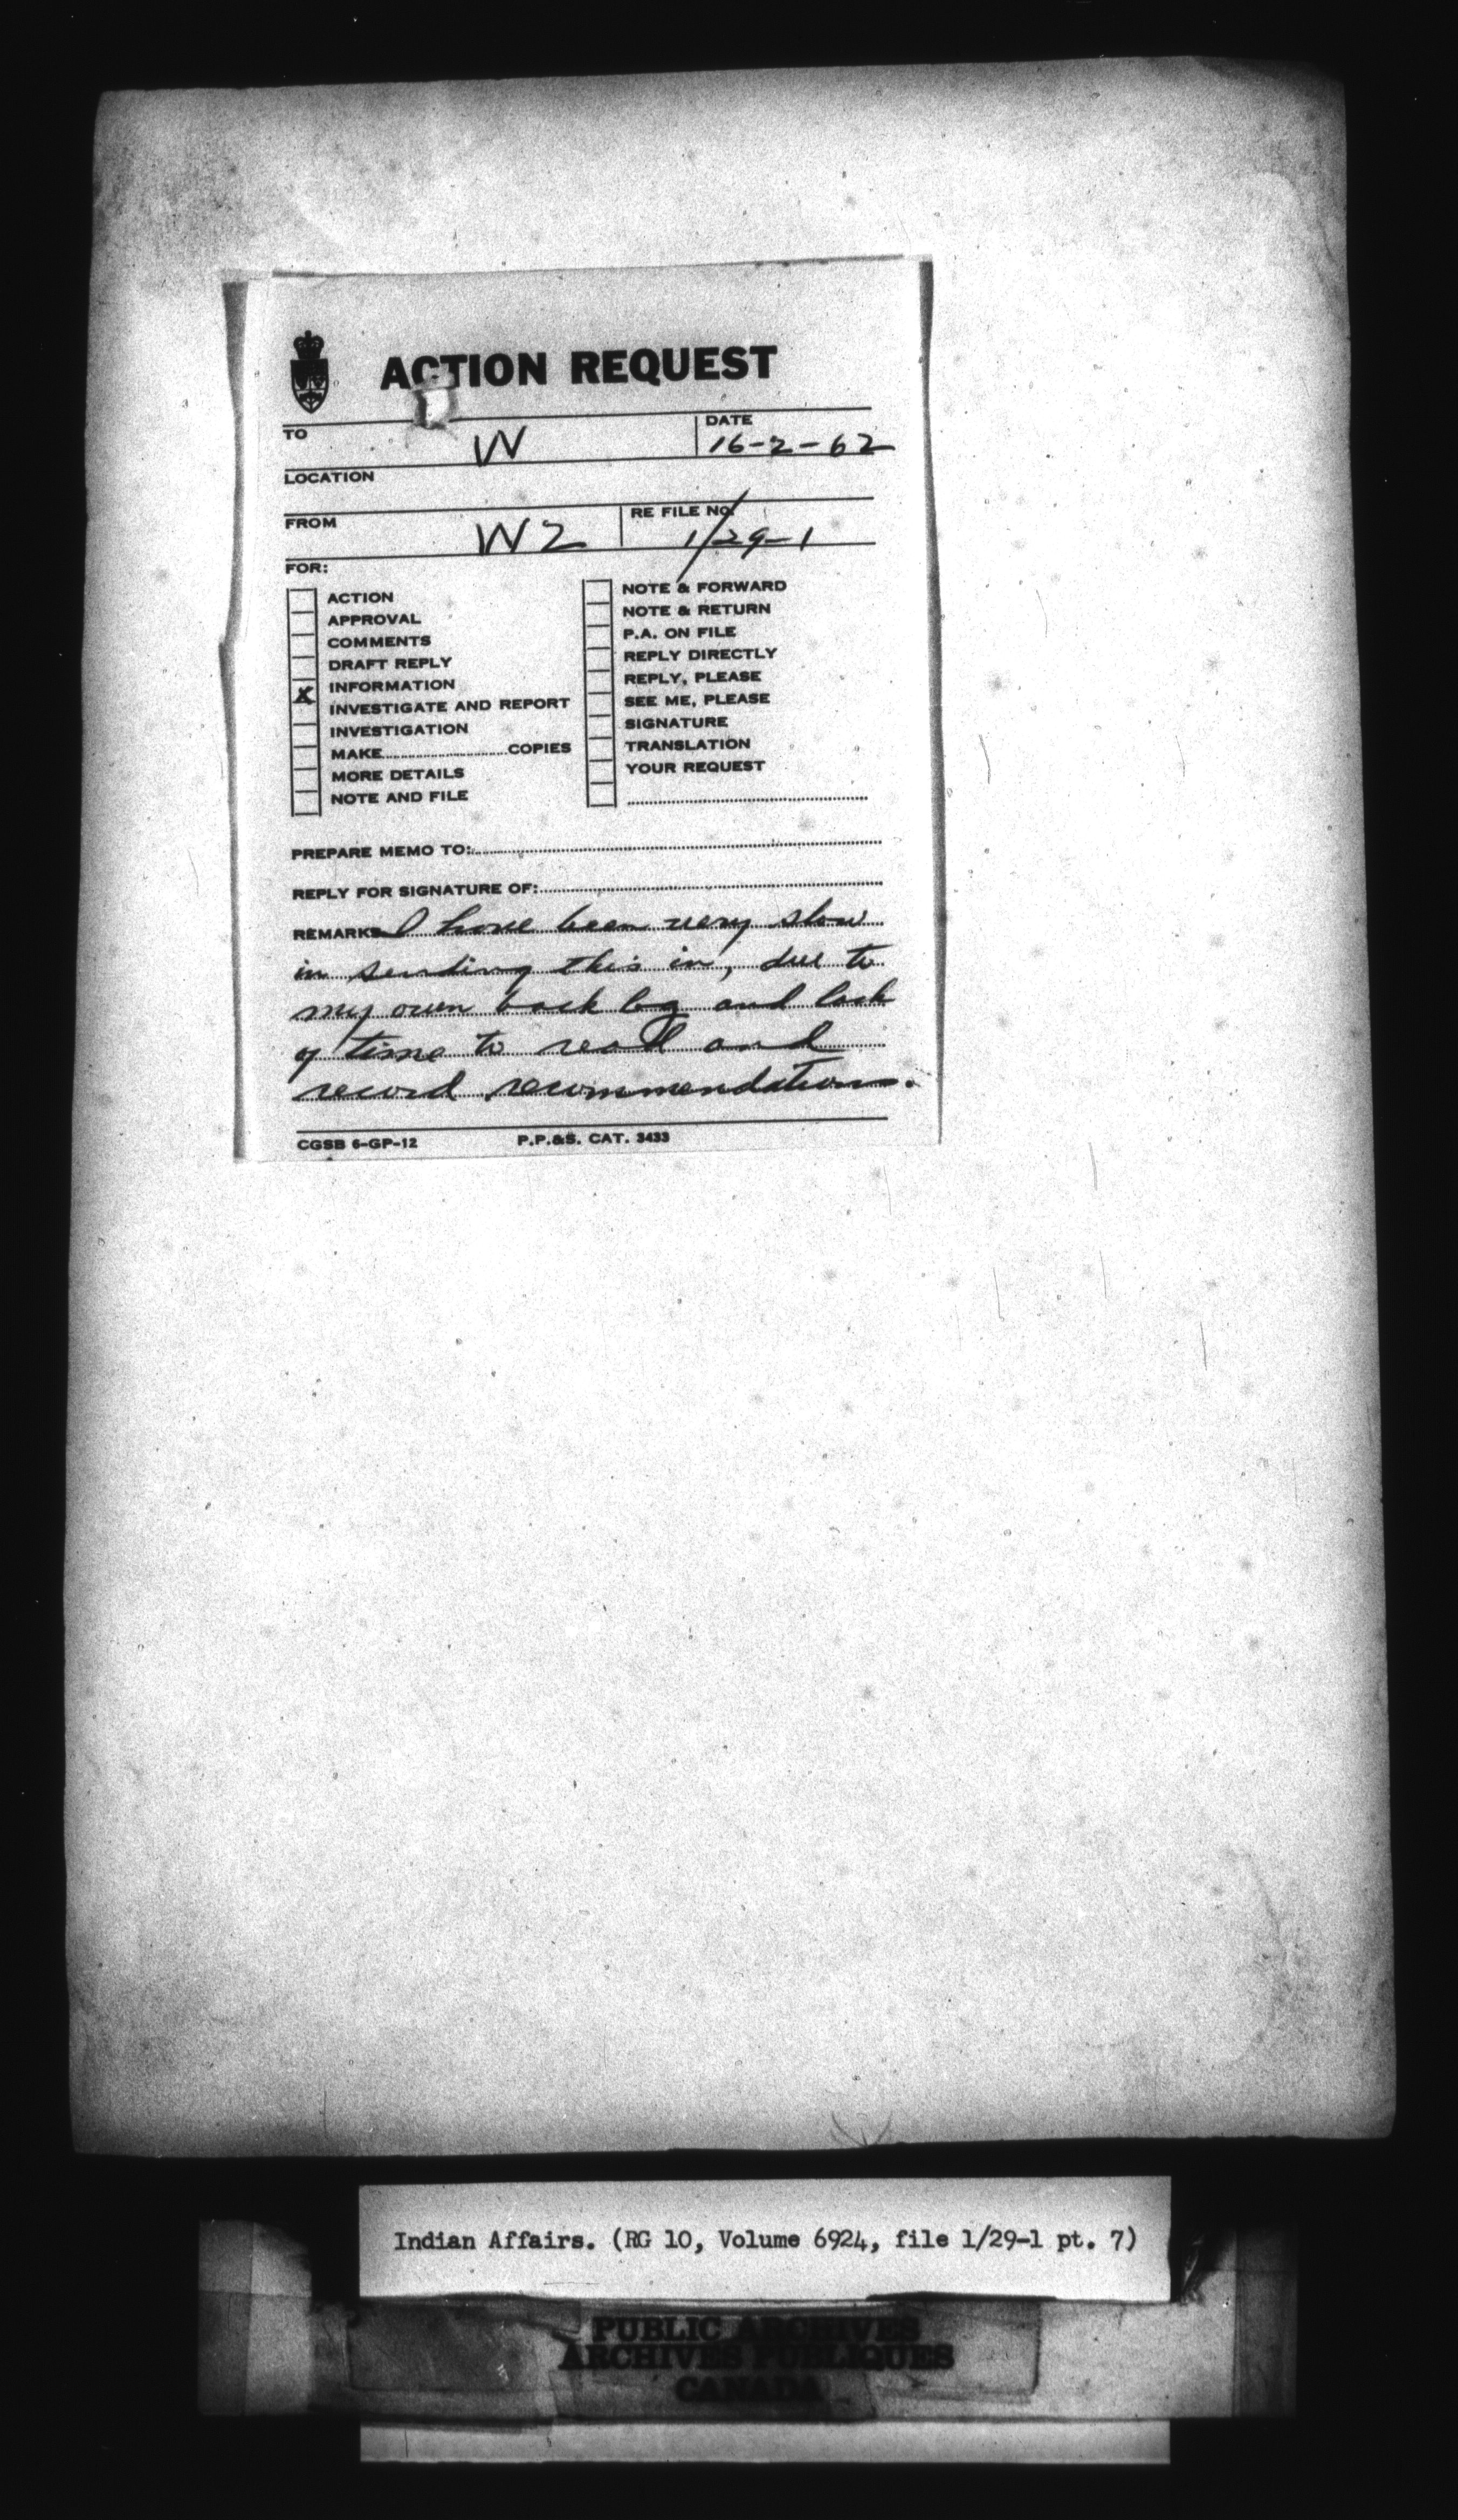 ACTION REQUEST
TO W DATE 16-2-62
LOCATION
FROM W2 RE FILE NO. 1/29-1
FOR:
ACTION
APPROVAL
COMMENTS
DRAFT REPLY
X INFORMATION
INVESTIGATE AND REPORT
INVESTIGATION
MAKE..............................COPIES
MORE DETAILS
NOTE AND FILE
NOTE & FORWARD
NOTE & RETURN
P.A. ON FILE
REPLY DIRECTLY
REPLY, PLEASE
SEE ME, PLEASE
SIGNATURE
TRANSLATION
YOUR REQUEST
PREPARE MEMO TO:
REPLY FOR SIGNATURE OF:
REMARKS I have been very slow
in sending this in, due to
my own back log and lack
of time to read and
record recommendations.
CGSB 6-GP-12 P.P.&S. CAT. 3433
Indian Affairs. (RG 10, Volume 6924, file 1/29-1 pt. 7)
PUBLIC ARCHIVES
ARCHIVES PUBLIQUES
CANADA